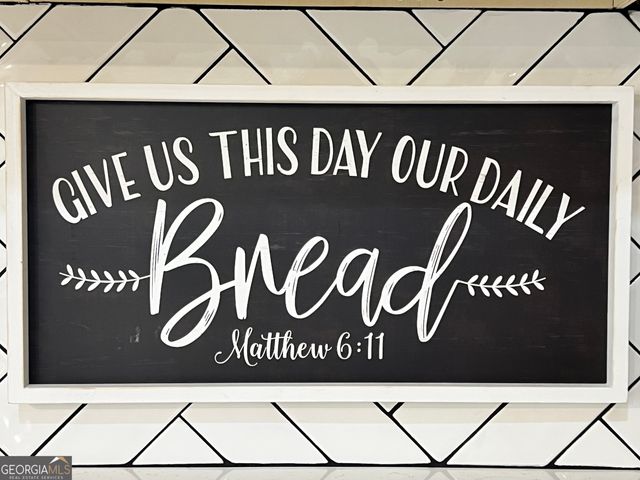 GIVE US THIS DAY OUR DAILY
Bread
Matthew 6:11
GEORGIA MLS
REAL ESTATE SERVICES